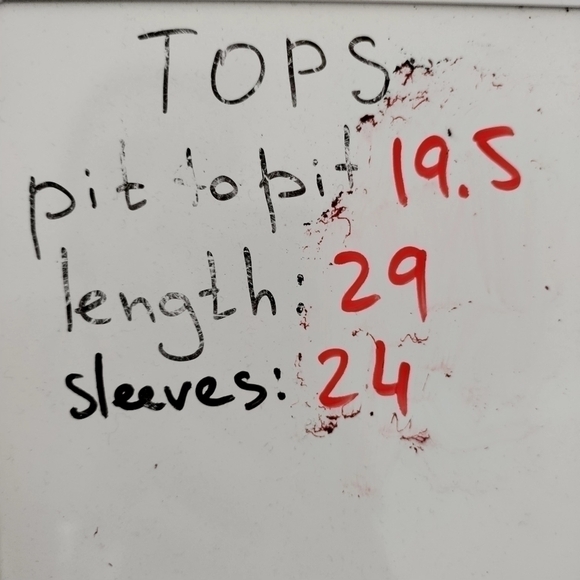 TOPS
pit to pit 19.5
length: 29
sleeves: 24